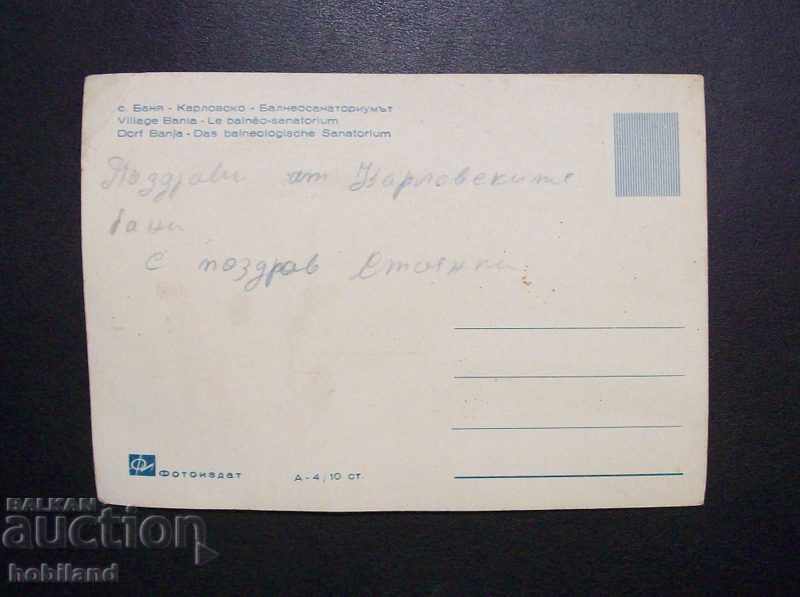 с. Баня - Карловско - Балнеосанаториумът
Village Bania - Le balnéo-sanatorium
Dorf Banja - Das balneologische Sanatorium
Поздрави от Карловските
бани
С поздрав
Фотоиздат А-4, 10 ст.
BALKAN
auction
hobiland